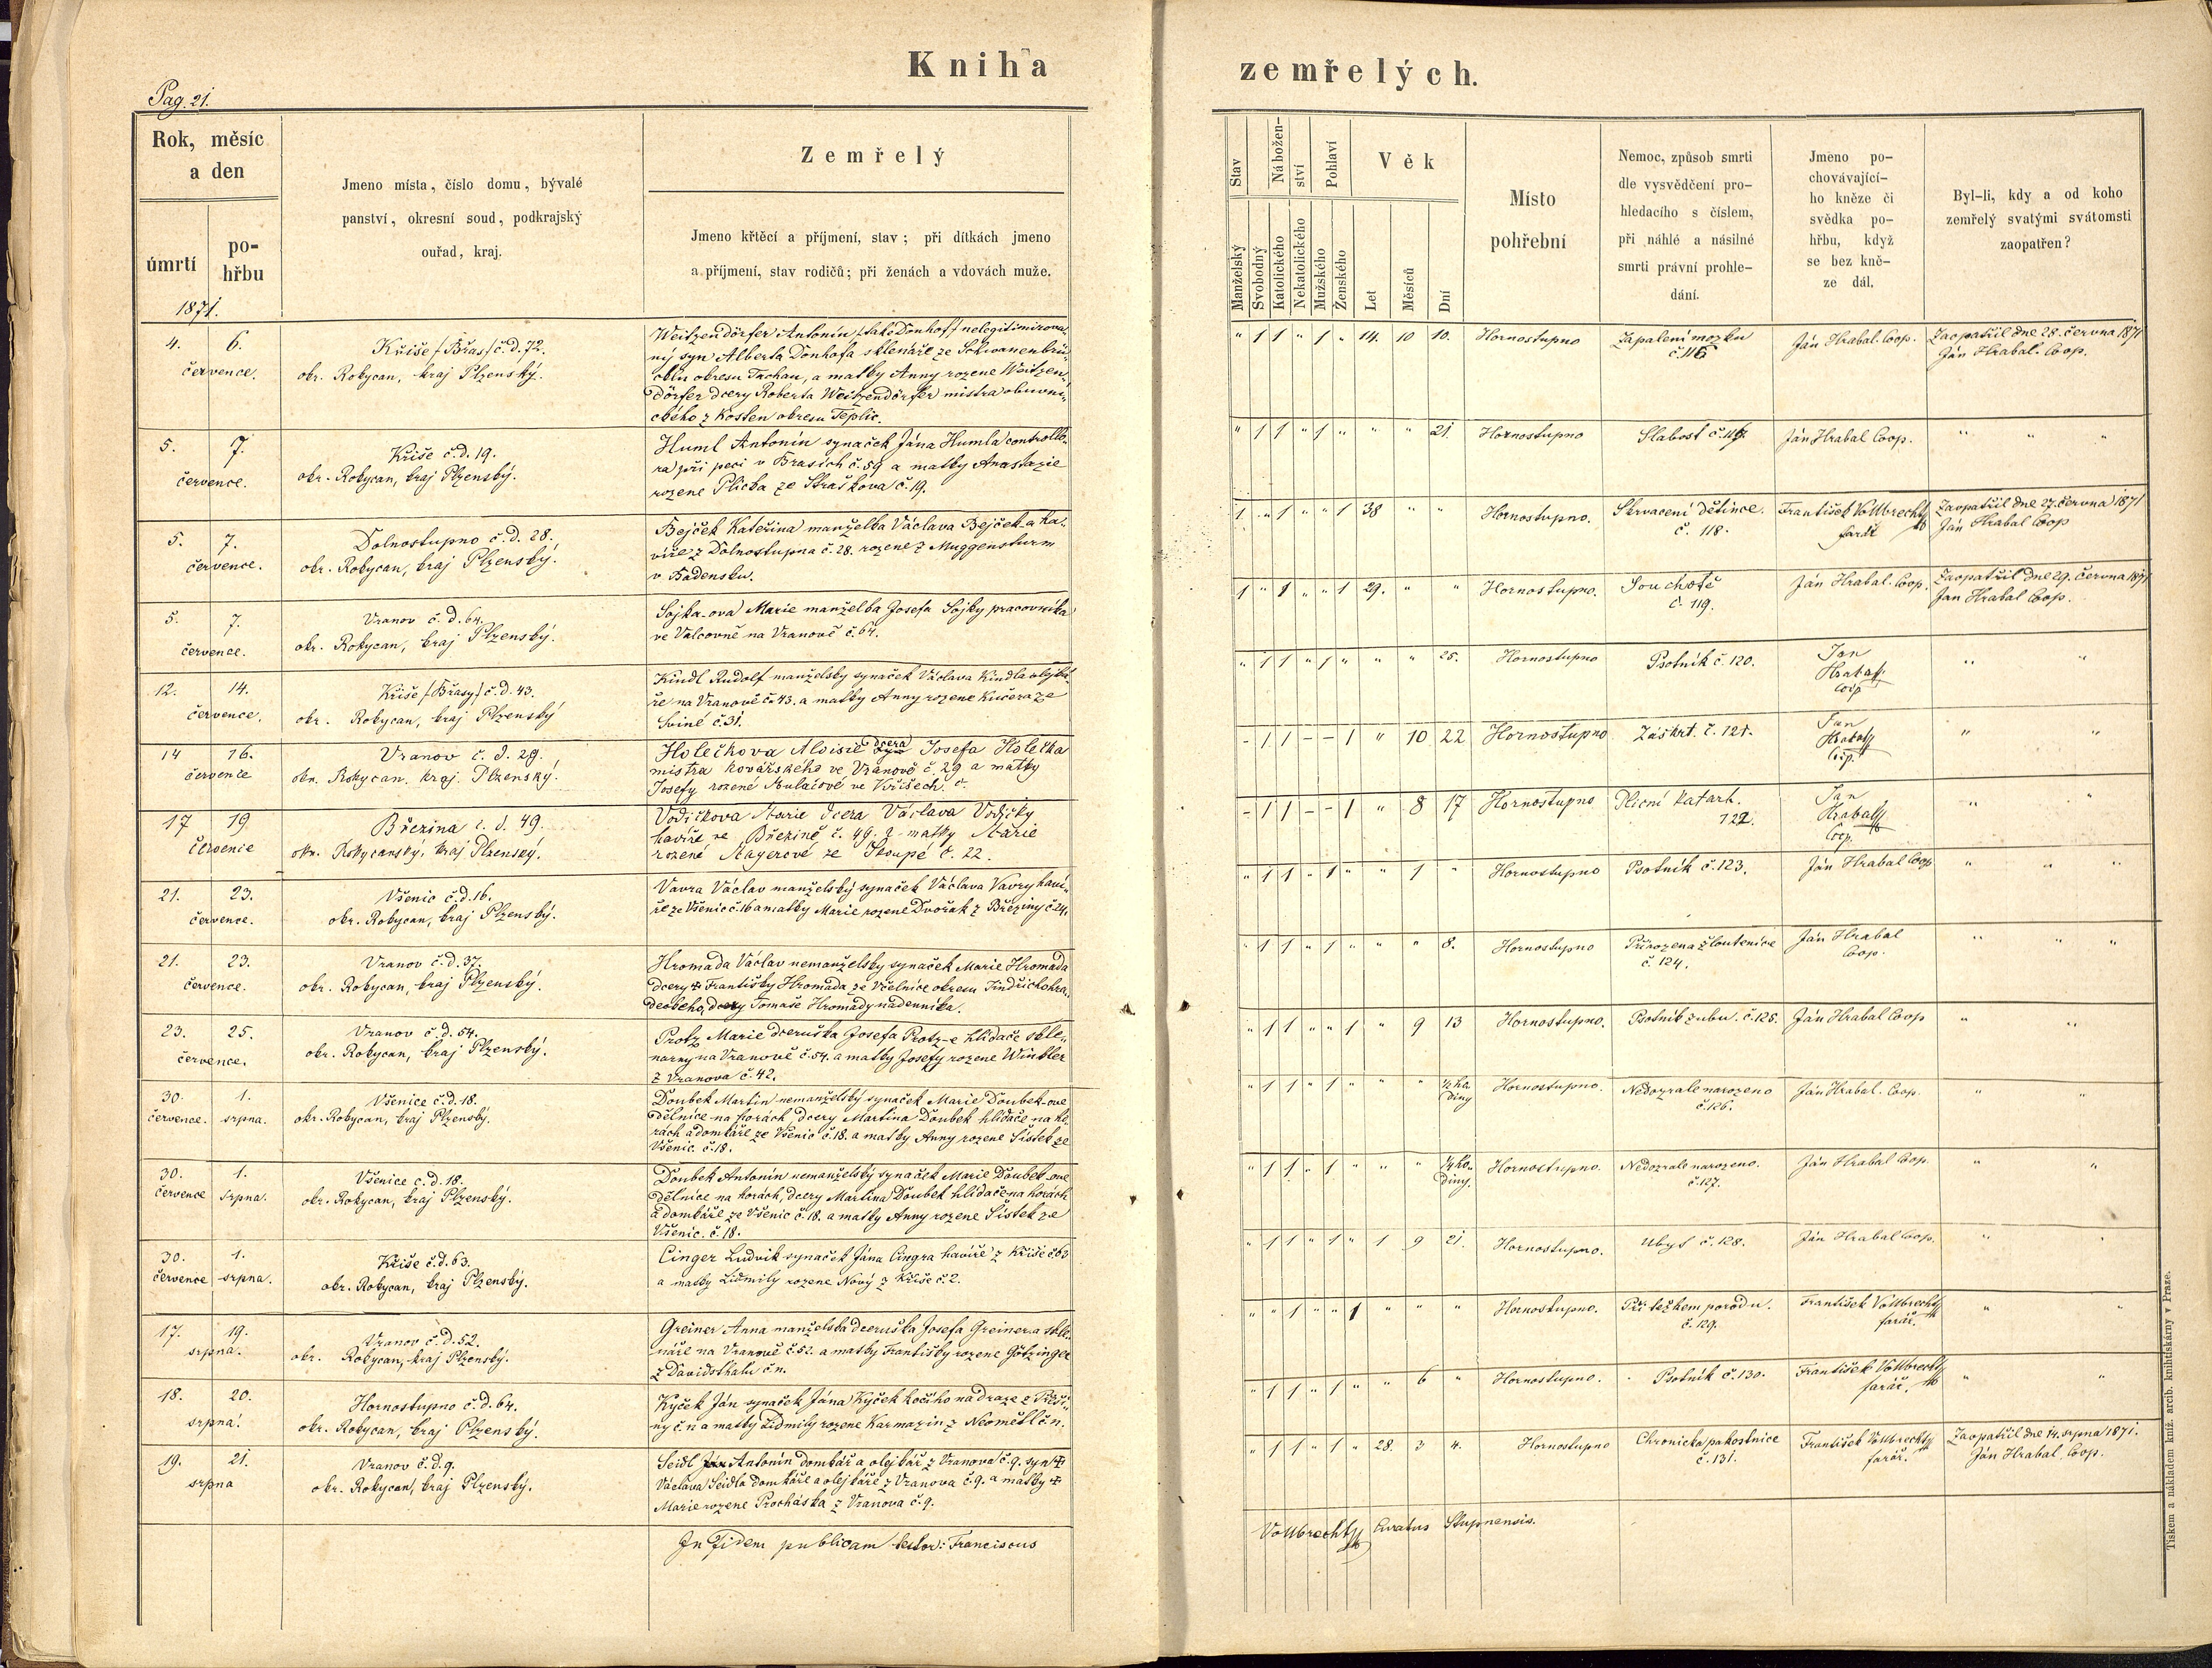 Kniha zemřelých.
Pag. 21.
Rok, měsíc
a den
úmrtí
po-
hřbu
Jmeno místa, číslo domu, bývalé
panství, okresní soud, podkrajský
ouřad, kraj.
Zemřelý
Jmeno křtěcí a příjmení, stav; při dítkách jmeno
a příjmení, stav rodičů; při ženách a vdovách muže.
Stav
Manželský
Svobodný
Nábožen-
ství
Katolického
Nekatolického
Pohlaví
Mužského
Ženského
Věk
Let
Měsíců
Dní
Místo
pohřební
Nemoc, způsob smrti
dle vysvědčení pro-
hledacího s číslem,
při náhlé a násilné
smrti právní prohle-
dání.
Jméno po-
chovávající-
ho kněze či
svědka po-
hřbu, když
se bez kně-
ze dál.
Byl-li, kdy a od koho
zemřelý svatými svátomsti
zaopatřen?
1871.
4. 6.
července.
Kříše /Břas/ č.d. 72.
okr. Rokycan, kraj Plzenský.
Weitzendörfer Antonín, /také Donhof/ nelegitimirova-
ný syn Alberta Donhofa sklenáře ze Schwanenbrü-
cklu okresu Tachau, a matky Anny rozene Weitzen-
dörfer dcery Roberta Weitzendörfer mistra obuvni-
ckého z Kosten okresu Teplic.
" 1 1 " 1 " 14. 10 10. Hornostupno
Zapalení mozku
č. 116
Ján Hrabal. Coop.
Zaopatřil dne 28. června 1871
Ján Hrabal. Coop.
5. 7.
července.
Kříše č.d. 19.
okr. Rokycan, kraj Plzenský.
Huml Antonín synaček Jána Humla controllo-
ra při peci v Brasích č. 59 a matky Anastazie
rozene Plicka ze Straškova č. 19.
" 1 1 " 1 " " " 21. Hornostupno Slabost č. 117. Ján Hrabal Coop. " " "
5. 7.
července.
Dolnostupno č.d. 28.
okr. Rokycan, kraj Plzenský.
Bejček Kateřina manželka Václava Bejček-a ha-
víře z Dolnostupna č. 28. rozene z Muggensturm
v Badensku.
1 " 1 " " 1 38 " " Hornostupno.
Skrvacení dětince.
č. 118.
František Vollbrecht
farář
Zaopatřil dne 27. června 1871
Ján Hrabal Coop
5. 7.
července.
Vranov č.d. 64.
okr. Rokycan, kraj Plzenský.
Sojka-ova Marie manželka Josefa Sojky pracovníka
ve Valcovně na Vranově č. 64.
1 " 1 " " 1 29. " " Hornostupno.
Souchotě
č. 119.
Ján Hrabal. Coop.
Zaopatřil dne 29. června 1871
Jan Hrabal Coop.
12. 14.
července.
Kříše /Břasy/ č.d. 43.
okr. Rokycan, kraj Plzenský
Kindl Rudolf manželsky synaček Václava Kindla olejká-
ře na Vranově č. 43. a matky Anny rozene Kučera ze
Sviné č. 31.
" 1 1 " 1 " " " 25. Hornostupno Psotník č. 120.
Jan
Hrabal
Coop
" "
14 16.
července
Vranov č. d. 29.
okr. Rokycan. kraj. Plzenský.
Holečkova Aloisie dcera Josefa Holečka
mistra kovářského ve Vranově č. 29 a matky
Josefy rozené ve Kříšech. č.
- 1 1 - - 1 " 10 22 Hornostupno Záškrt. č. 121.
Jan
Hrabal
Coop.
" "
17 19
července
Březina č. d. 49.
okr. Rokycanský, kraj Plzenský.
Vodičkova Marie dcera Václava Vodičky
havíře ve Březině č. 49. a matky Marie
rozené Mayerové ze Skoupé č. 22.
- 1 1 - - 1 " 8 17 Hornostupno
Plicní katarh.
122.
Jan
Hrabal
Coop.
" "
21. 23.
července.
Všenic č.d. 16.
okr. Rokycan, kraj Plzenský.
Vavra Václav manželský synaček Václava Vavry haví-
ře ze Všenic č. 16 a matky Marie rozene Dvořak z Březiny č. 24.
" 1 1 " 1 " " 1 " Hornostupno Psotník č. 123. Ján Hrabal Coop " " "
21. 23.
července.
Vranov č.d. 37.
okr. Rokycan, kraj Plzenský.
Hromada Václav nemanželsky synaček Marie Hromada
dcery ✝ Františky Hromada ze Včelnice okresu Jindřichohra-
deckeho, dcery Tomaše Hromady nadenníka.
" 1 1 " 1 " " " 8. Hornostupno
Přirozena žloutenice
č. 124.
Ján Hrabal
Coop.
" " "
23. 25.
července.
Vranov č.d. 54.
okr. Rokycan, kraj Plzenský.
Protz Marie dceruška Josefa Protz-e hlídače skle-
narny na Vranově č. 54. a matky Josefy rozene Winkler
z Vranova č. 42.
" 1 1 " " 1 " 9 13 Hornostupno. Psotník zubu. č. 125. Ján Hrabal Coop " "
30. 1.
července. srpna.
Všenice č.d. 18.
okr. Rokycan, kraj Plzenský.
Doubek Martin nemanželský synaček Marie Doubek-ove
dělnice na horách dcery Martina Doubek hlídače na ho-
rách a domkáře ze Všenic č. 18. a matky Anny rozene Sistek ze
Všenic. č. 18.
" 1 1 " 1 " " " ½ ho-
diny
Hornostupno.
Nedozrale narozeno
č. 126.
Ján Hrabal. Coop. " "
30. 1.
července srpna.
Všenice č.d. 18.
okr. Rokycan, kraj Plzenský.
Doubek Antonín nemanželský synaček Marie Doubek-ove
dělnice na horách, dcery Martina Doubek hlídače na horách
a domkáře ze Všenic č. 18. a matky Anny rozene Sistek ze
Všenic. č. 18.
" 1 1 " 1 " " " ¼ ho-
diny.
Hornostupno.
Nedozrale narozeno.
č. 127.
Ján Hrabal Coop. " "
30. 1.
července srpna.
Kříše č.d. 63.
okr. Rokycan, kraj Plzenský.
Cinger Ludvik synaček Jána Cingra havíře z Kříše č. 63
a matky Lidmily rozene Nový z Kříše č. 2.
" 1 1 " 1 " 1 9 21. Hornostupno. Ubyt č. 128. Ján Hrabal Coop. " "
17. 19.
srpna.
Vranov č.d. 52.
okr. Rokycan, kraj Plzenský.
Greiner Anna manželska dceruška Josefa Greinera skle-
náře na Vranově č. 52. a matky Františky rozene Götzinger
z Davidsthalu č. n.
" " 1 " " 1 " " " Hornostupno.
Při težkem porodu.
č. 129.
František Vollbrecht
farář.
" "
18. 20.
srpna.
Hornostupno č.d. 64.
okr. Rokycan, kraj Plzenský.
Kyček Ján synaček Jána Kyček kočího na draze z
č. n a matky Lidmily rozene Karmazin z Neoměřl č. n.
" 1 1 " 1 " " 6 " Hornostupno. Psotník č. 130.
František Vollbrecht
farář.
" "
19. 21.
srpna
Vranov č.d. 9.
okr. Rokycan, kraj Plzenský.
Seidl Antonín domkář a olejkář z Vranova č. 9. syn ✝
Václava Seidla domkáře a olejkáře z Vranova č. 9. a matky ✝
Marie rozene Procháska z Vranova č. 9.
" 1 1 " 1 " 28. 3 4. Hornostupno
Chronicka pakostnice
č. 131.
František Vollbrecht
farář.
Zaopatřil dne 14. srpna 1871.
Ján Hrabal, Coop.
In Fidem publicam testor: Franciscus Vollbrecht Curatus Stupnensis.
Tiskem a nákladem kniž. arcib. knihtiskárny v Praze.